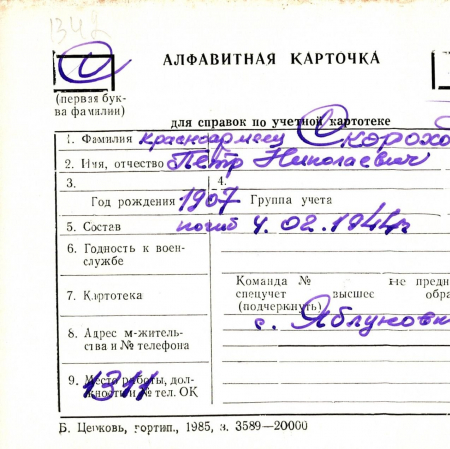 1342
С
АЛФАВИТНАЯ КАРТОЧКА
(первая бук-
ва фамилии)
для справок по учетной картотеке
1. Фамилия красноармеец Скорохо
2. Имя, отчество Пётр Николаевич
3. 4.
Год рождения 1907 Группа учета
5. Состав погиб 4.02.1944г
6. Годность к воен-
службе
7. Картотека
Команда № не предн
спецучет высшее обра
(подчеркнуть)
с. Яблуновк
8. Адрес м-житель-
ства и № телефона
9. Место работы, дол-
жности и № тел. ОК
1311
Б. Церковь, гортип., 1985, з. 3589—20000